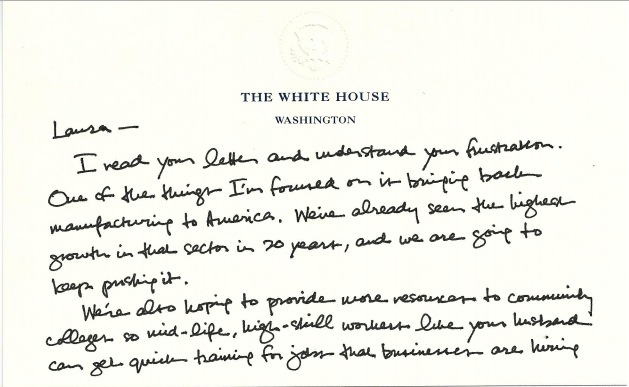 THE WHITE HOUSE
WASHINGTON
Laura —
I read your letter and understand your frustration.
One of the things I'm focused on is bringing back
manufacturing to America. We've already seen the highest
growth in that sector in 20 years, and we are going to
keep pushing it.
We're also hoping to provide more resources to community
colleges so mid-life, high-skill workers like your husband
can get quick training for jobs that businesses are hiring